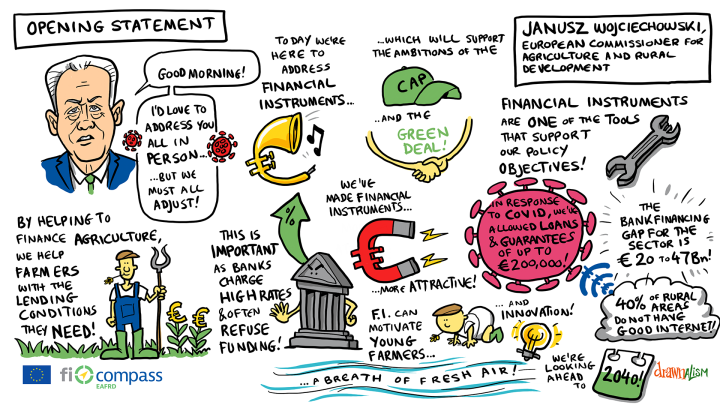 OPENING STATEMENT
GOOD MORNING!
I'D LOVE TO
ADDRESS YOU
ALL IN
PERSON...
...BUT WE
MUST ALL
ADJUST!
TODAY WE'RE
HERE TO
ADDRESS
FINANCIAL
INSTRUMENTS...
...WHICH WILL SUPPORT
THE AMBITIONS OF THE
CAP
...AND THE
GREEN
DEAL!
JANUSZ WOJCIECHOWSKI,
EUROPEAN COMMISSIONER FOR
AGRICULTURE AND RURAL
DEVELOPMENT
FINANCIAL INSTRUMENTS
ARE ONE OF THE TOOLS
THAT SUPPORT
OUR POLICY
OBJECTIVES!
BY HELPING TO
FINANCE AGRICULTURE,
WE HELP
FARMERS
WITH THE
LENDING
CONDITIONS
THEY NEED!
€ €
%
THIS IS
IMPORTANT
AS BANKS
CHARGE
HIGH RATES
& OFTEN
REFUSE
FUNDING!
WE'VE
MADE FINANCIAL
INSTRUMENTS...
...MORE ATTRACTIVE!
IN RESPONSE
TO COVID, WE'VE
ALLOWED LOANS
& GUARANTEES
OF UP TO
€200,000!
THE
BANK FINANCING
GAP FOR THE
SECTOR IS
€ 20 TO 47Bn!
40% OF RURAL
AREAS
DO NOT HAVE
GOOD INTERNET!
F.I. CAN
MOTIVATE
YOUNG
FARMERS...
...AND
INNOVATION!
...A BREATH OF FRESH AIR!
WE'RE
LOOKING
AHEAD
TO
2040!
fi compass
EAFRD
drawnalism